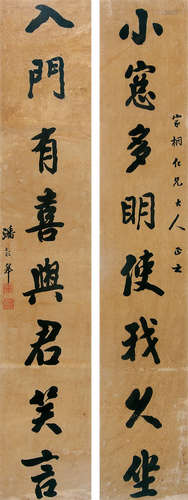 小窻多明使我久坐
家桐仁兄大人正之
入門有喜與君笑言
潘齡皋